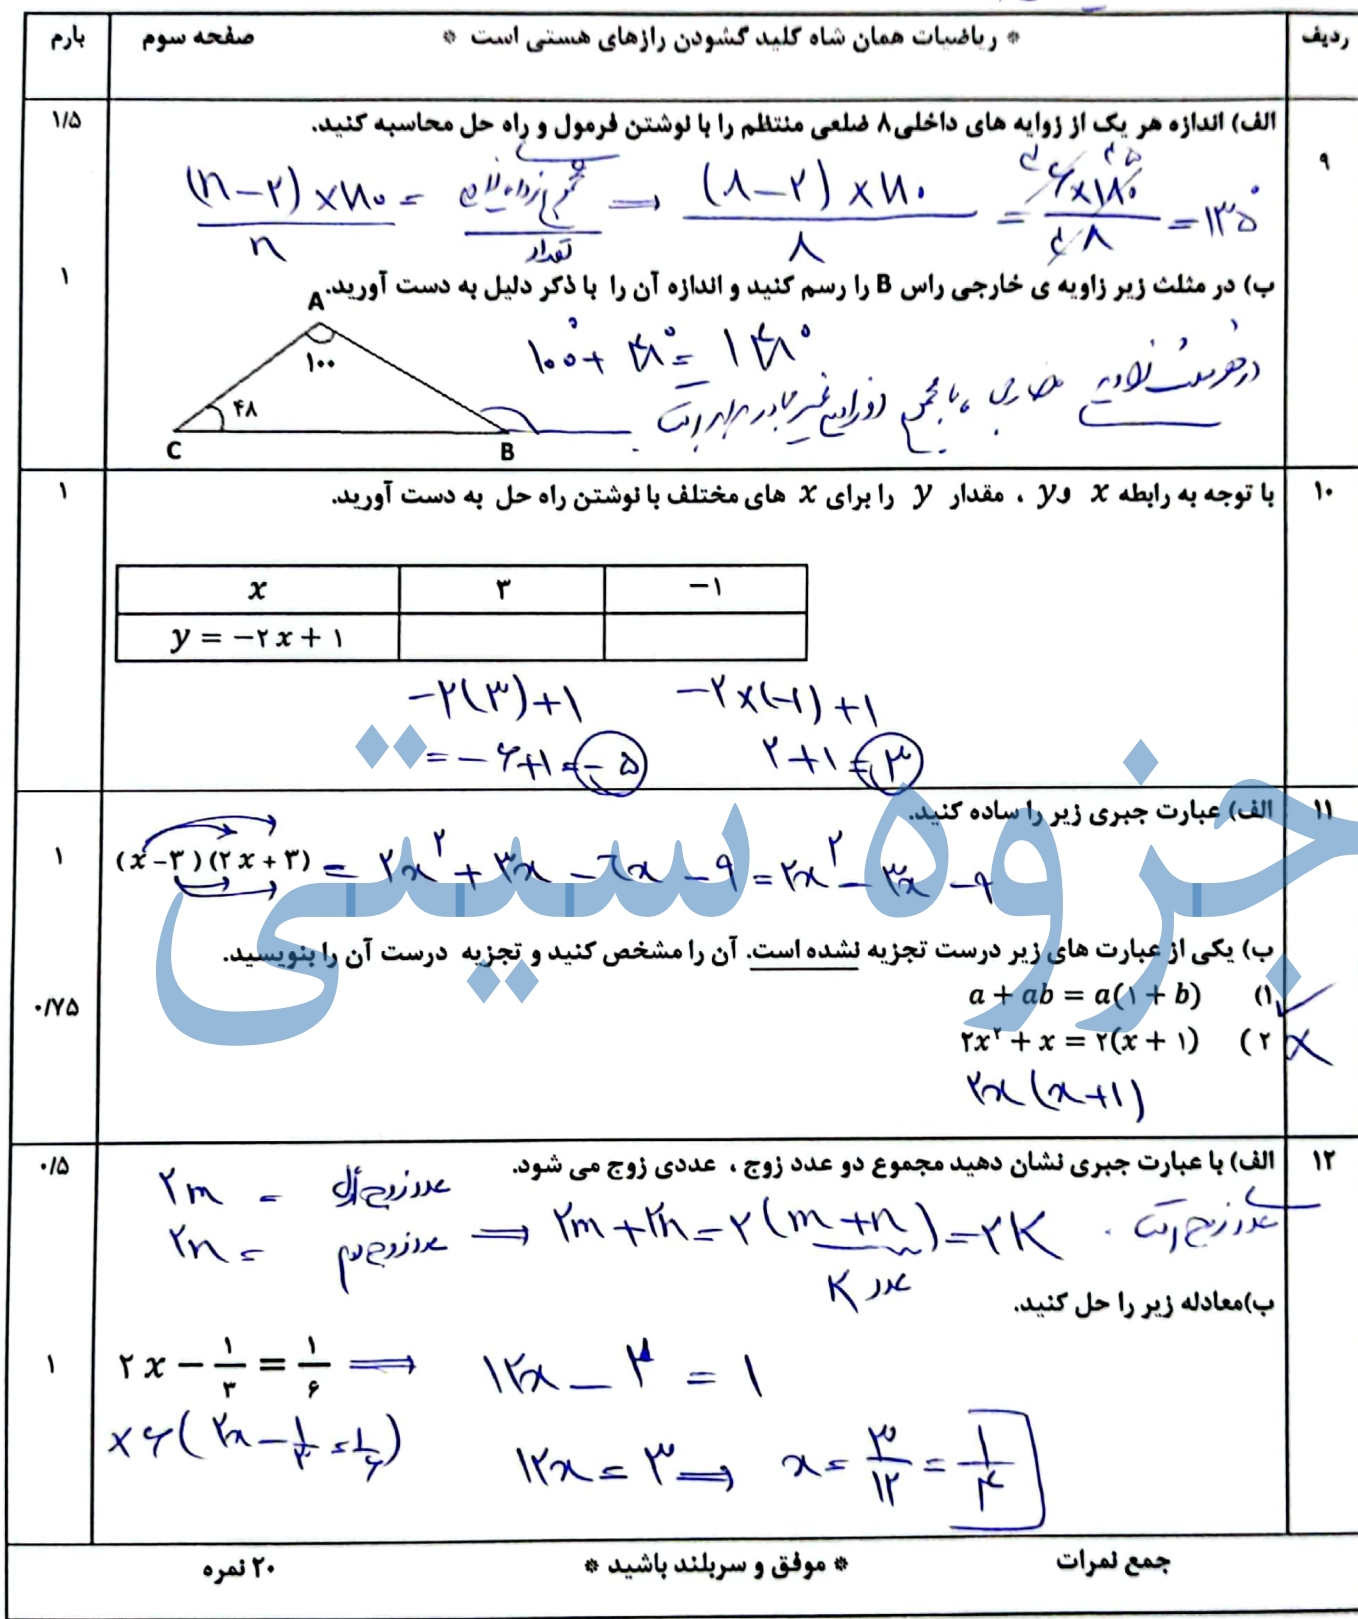 ردیف * ریاضیات همان شاه کلید گشودن رازهای هستی است * صفحه سوم بارم
۹ الف) اندازه هر یک از زوایه های داخلی ۸ ضلعی منتظم را با نوشتن فرمول و راه حل محاسبه کنید. ۱/۵
(n-۲) × ۱۸۰ / n = مجموع زوایه داخلی / تعداد ⟹ (۸-۲) × ۱۸۰ / ۸ = ۶×۱۸۰ / ۸ = ۱۳۵°
ب) در مثلث زیر زاویه ی خارجی راس B را رسم کنید و اندازه آن را با ذکر دلیل به دست آورید. ۱
A
۱۰۰
۴۸
C B
۱۰۰° + ۴۸° = ۱۴۸°
در هر مثلث زاویه خارجی با مجموع دو زاویه غیر مجاور برابر است.
۱۰ با توجه به رابطه x و y ، مقدار y را برای x های مختلف با نوشتن راه حل به دست آورید. ۱
x ۳ -۱
y = -۲x + ۱
-۲(۳)+۱ -۲×(-۱)+۱
= -۶+۱ = -۵ ۲+۱ = ۳
۱۱ الف) عبارت جبری زیر را ساده کنید.
۱ (x-۳)(۲x+۳) = ۲x² + ۳x - ۶x - ۹ = ۲x² - ۳x - ۹
ب) یکی از عبارت های زیر درست تجزیه نشده است. آن را مشخص کنید و تجزیه درست آن را بنویسید.
۰/۷۵
۱) a + ab = a(۱ + b) ✓
۲) ۲x² + x = ۲(x + ۱) ×
۲x(x+۱)
جزوه سیتی
۱۲ الف) با عبارت جبری نشان دهید مجموع دو عدد زوج ، عددی زوج می شود. ۰/۵
۲m = عدد زوج اول
۲n = عدد زوج دوم ⟹ ۲m + ۲n = ۲(m+n) = ۲K عدد زوج است.
عدد K
ب)معادله زیر را حل کنید.
۱ ۲x - ۱/۳ = ۱/۶ ⟹ ۱۲x - ۲ = ۱
×۶(۲x - ۱/۳ = ۱/۶) ۱۲x = ۳ ⟹ x = ۳/۱۲ = ۱/۴
جمع نمرات * موفق و سربلند باشید * ۲۰ نمره